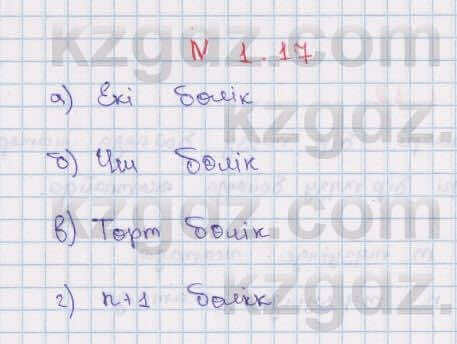 N 1.17
а) Екі бөлік
б) Үш бөлік
в) Төрт бөлік
г) n+1 бөлік
kzgdz.com
kzgdz.com
kzgdz.com
kzgdz.com